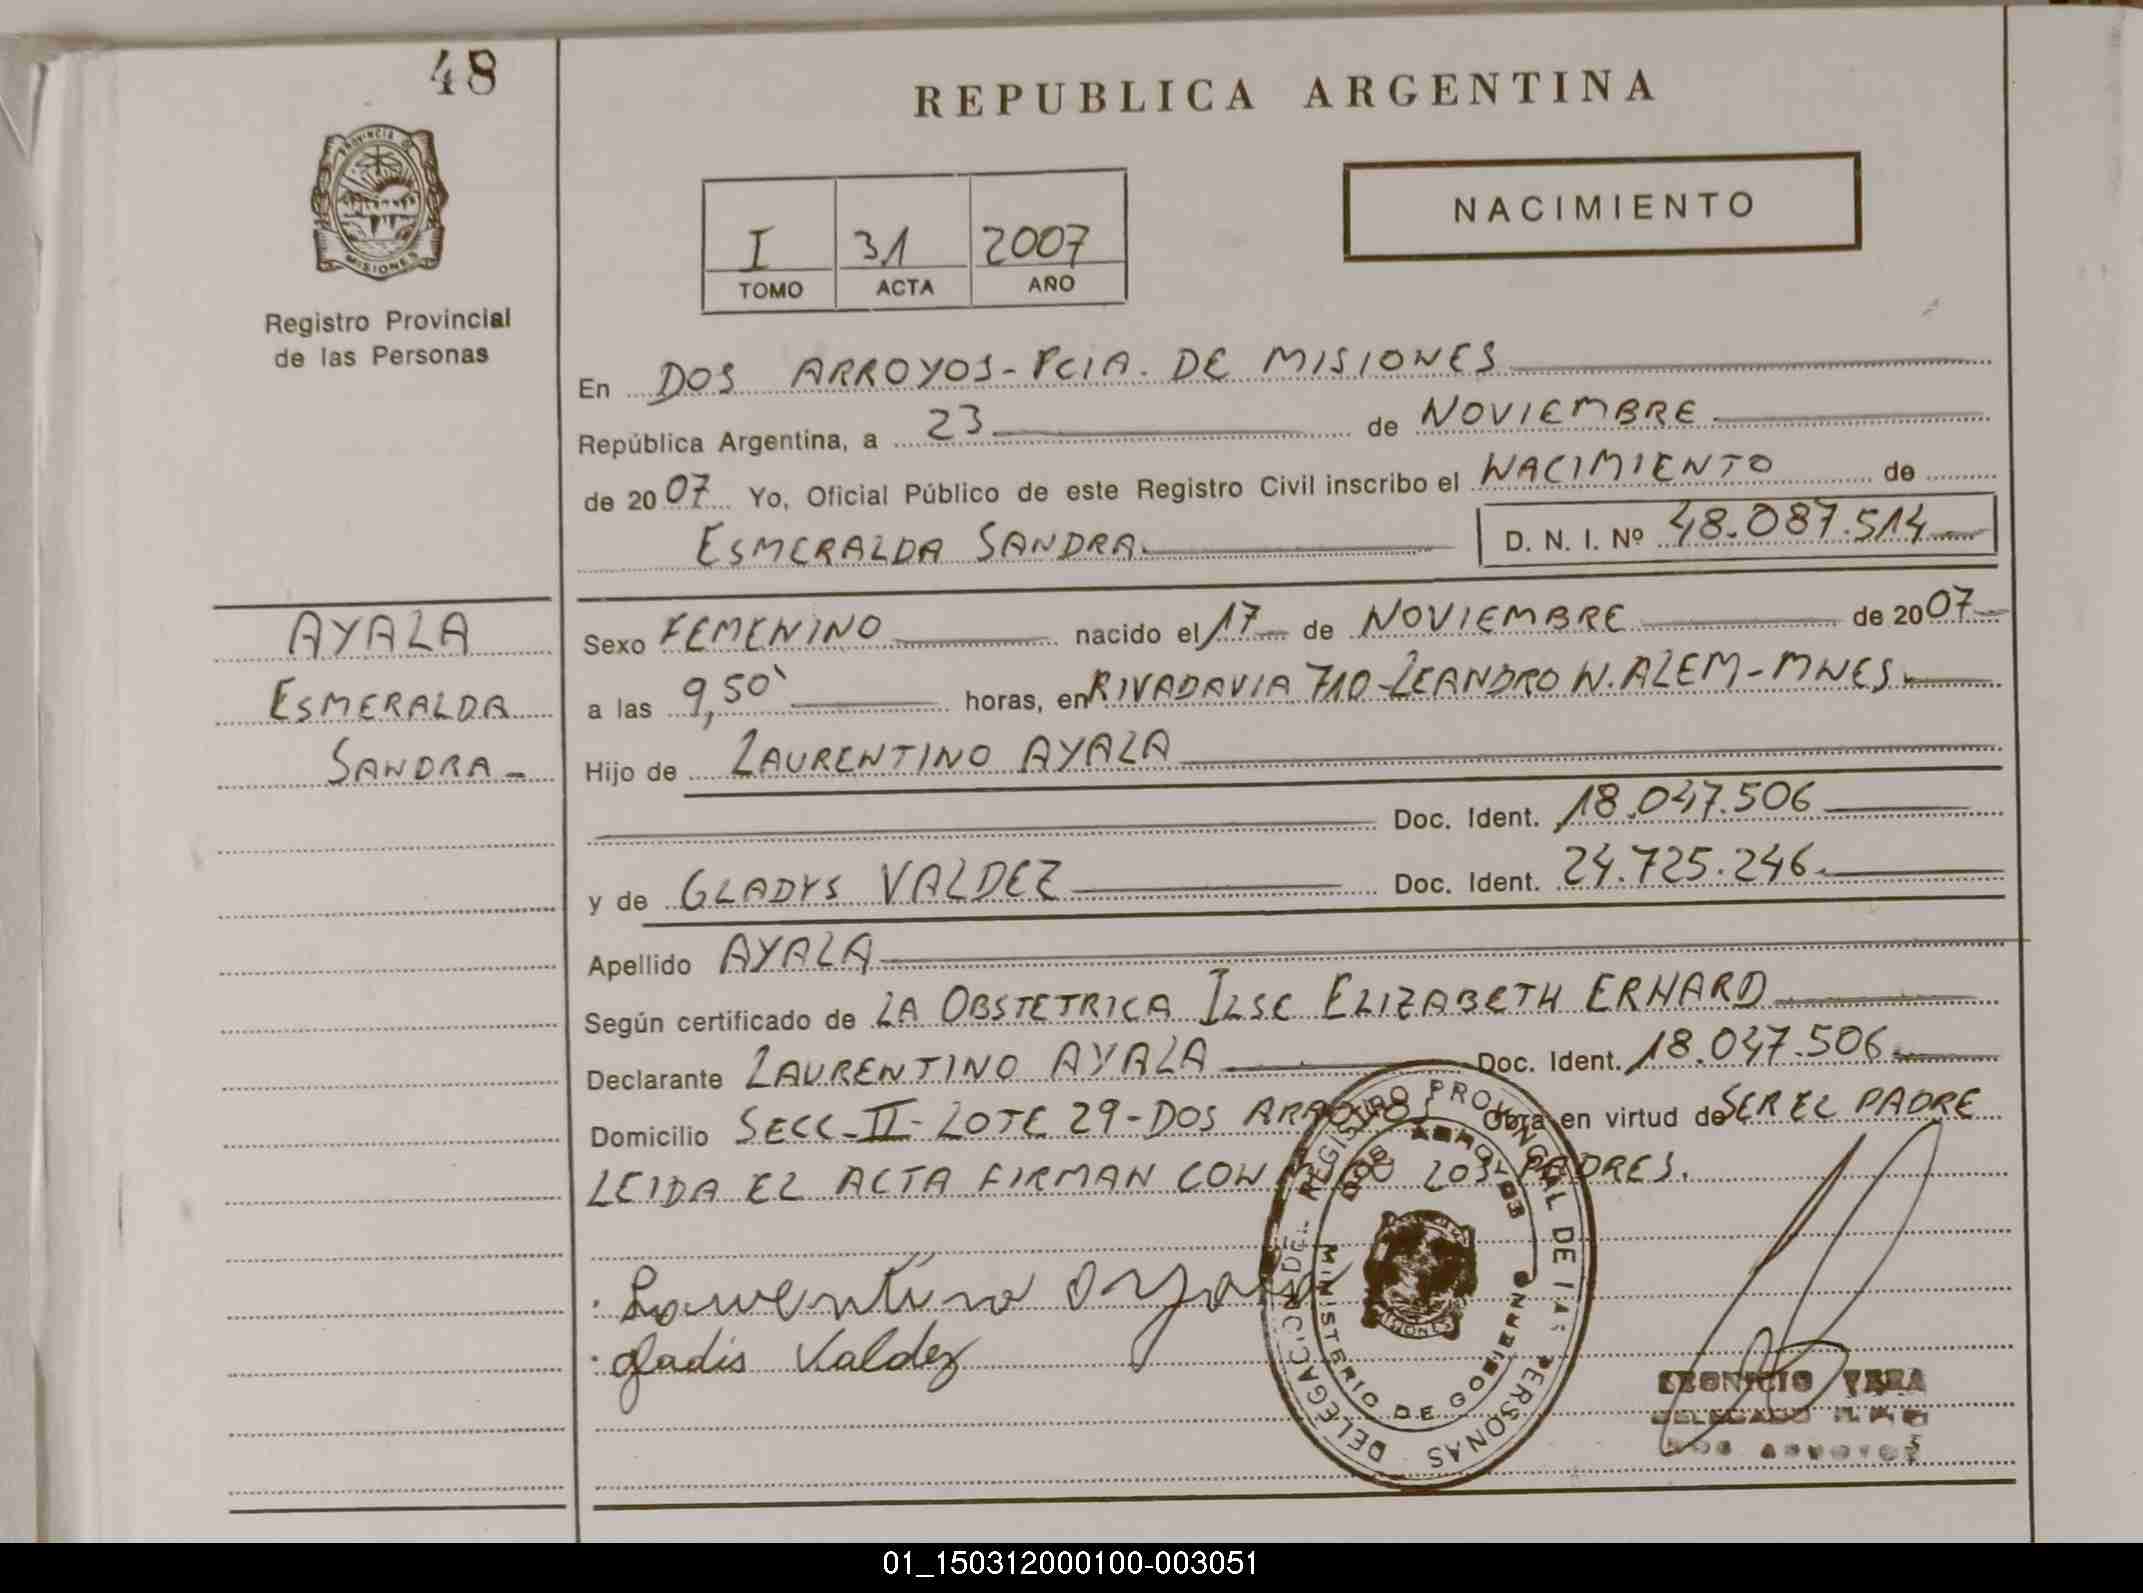 48
REPUBLICA ARGENTINA
PROVINCIA DE
MISIONES
Registro Provincial
de las Personas
I 31 2007
TOMO ACTA AÑO
NACIMIENTO
En DOS ARROYOS - PCIA. DE MISIONES
República Argentina, a 23 de NOVIEMBRE
de 2007 Yo, Oficial Público de este Registro Civil inscribo el NACIMIENTO de
ESMERALDA SANDRA D. N. I. Nº 48.087.514
AYALA
ESMERALDA
SANDRA -
Sexo FEMENINO nacido el 17 de NOVIEMBRE de 2007
a las 9,50` horas, en RIVADAVIA 710 - LEANDRO N. ALEM - MNES
Hijo de LAURENTINO AYALA
Doc. Ident. 18.047.506
y de GLADYS VALDEZ Doc. Ident. 24.725.246
Apellido AYALA
Según certificado de LA OBSTETRICA ILSE ELIZABETH ERHARD
Declarante LAURENTINO AYALA Doc. Ident. 18.047.506
Domicilio SECC - II - LOTE 29 - DOS ARROYOS Obra en virtud de SER EL PADRE
LEIDA EL ACTA FIRMAN CONMIGO LOS PADRES.
Laurentino Ayala
gladis Valdez
DELEGACION DEL REGISTRO PROVINCIAL DE LAS PERSONAS
DOS ARROYOS
MINISTERIO DE GOBIERNO
MISIONES
VERA
DELEGADO
DOS ARROYOS
01_150312000100-003051